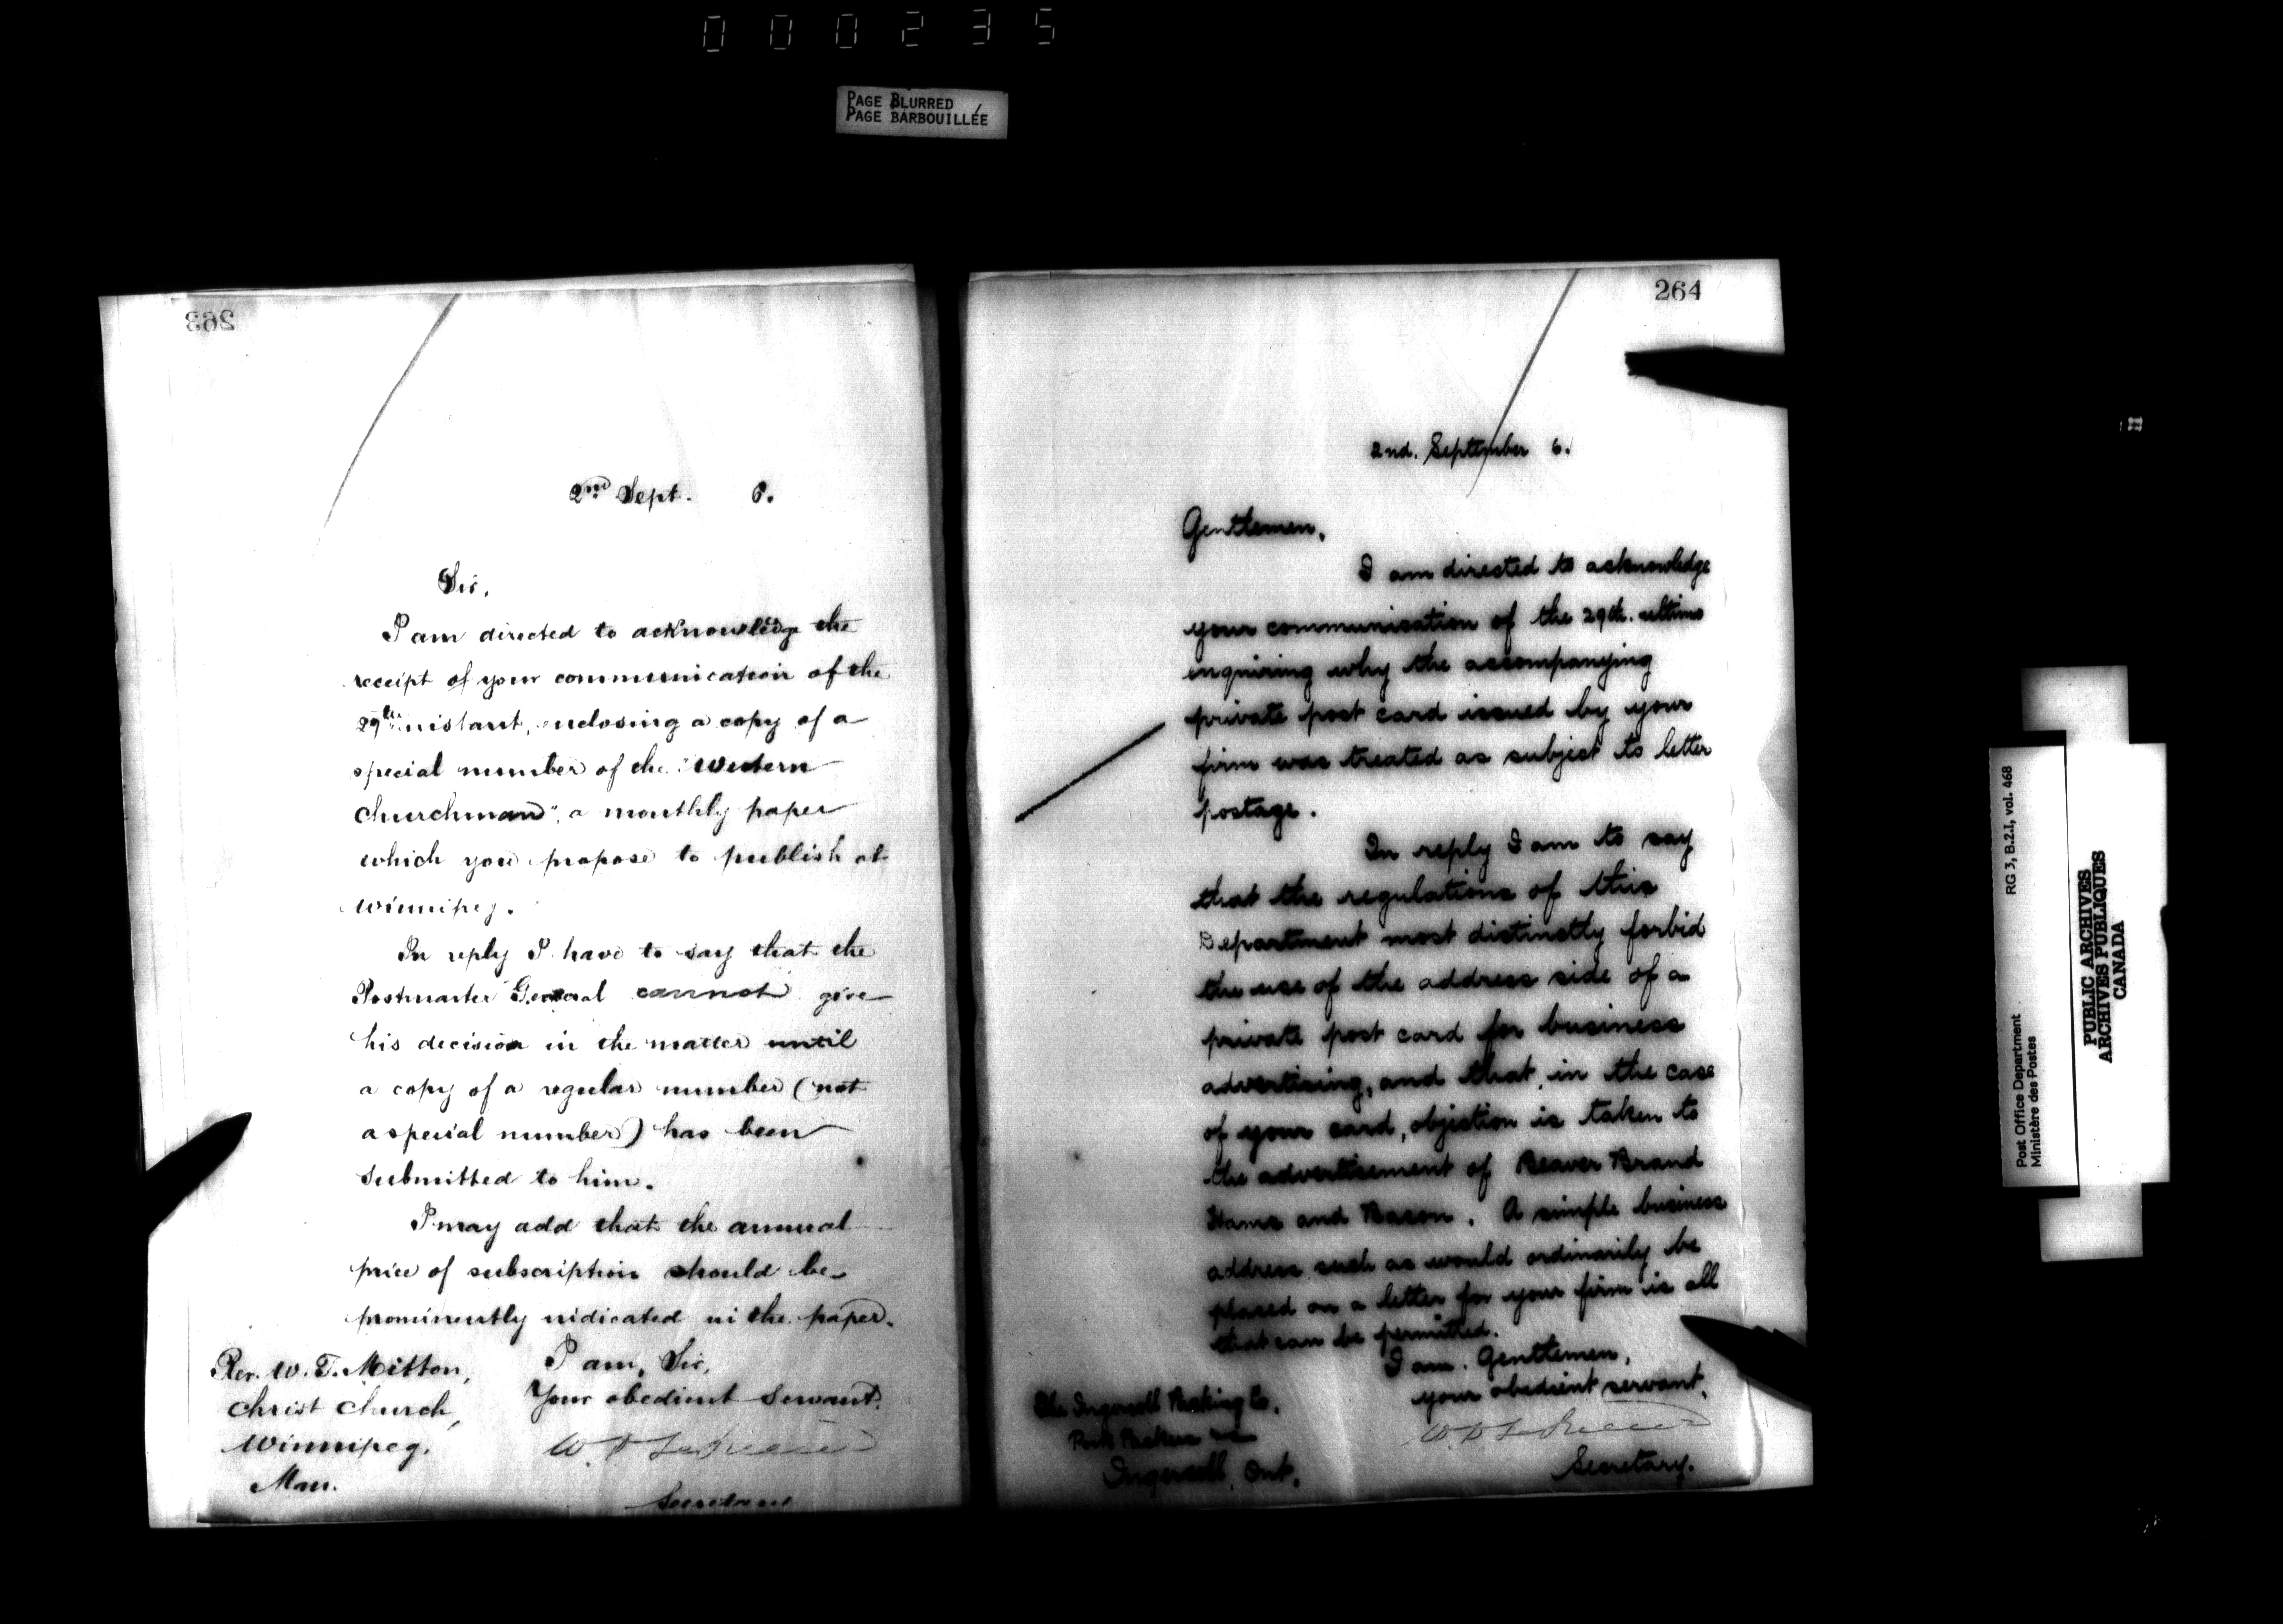 000235
PAGE BLURRED
PAGE BARBOUILLÉE
263
2nd Sept. 6.
Sir,
I am directed to acknowledge the
receipt of your communication of the
29th instant, enclosing a copy of a
special number of the "Western
Churchman", a monthly paper
which you propose to publish at
Winnipeg.
In reply I have to say that the
Postmaster General cannot give
his decision in the matter until
a copy of a regular number (not
a special number) has been
submitted to him.
I may add that the annual
price of subscription should be
prominently indicated in the paper.
I am, Sir,
Your obedient Servant.
Secretary
Rev. W. T. Mitton,
Christ Church,
Winnipeg.
Man.
264
2nd. September 6.
Gentlemen,
I am directed to acknowledge
your communication of the 29th. ultimo
enquiring why the accompanying
private post card issued by your
firm was treated as subject to letter
postage.
In reply I am to say
that the regulations of this
Department most distinctly forbid
the use of the address side of a
private post card for business
advertising, and that, in the case
of your card, objection is taken to
the advertisement of Beaver Brand
Hams and Bacon. A simple business
address such as would ordinarily be
placed on a letter for your firm is all
that can be permitted.
I am. Gentlemen,
your obedient servant,
Secretary.
The Ingersoll Packing Co.
Pork Packers
Ingersoll, Ont.
RG 3, B.2.1, vol. 468
Post Office Department
Ministère des Postes
PUBLIC ARCHIVES
ARCHIVES PUBLIQUES
CANADA